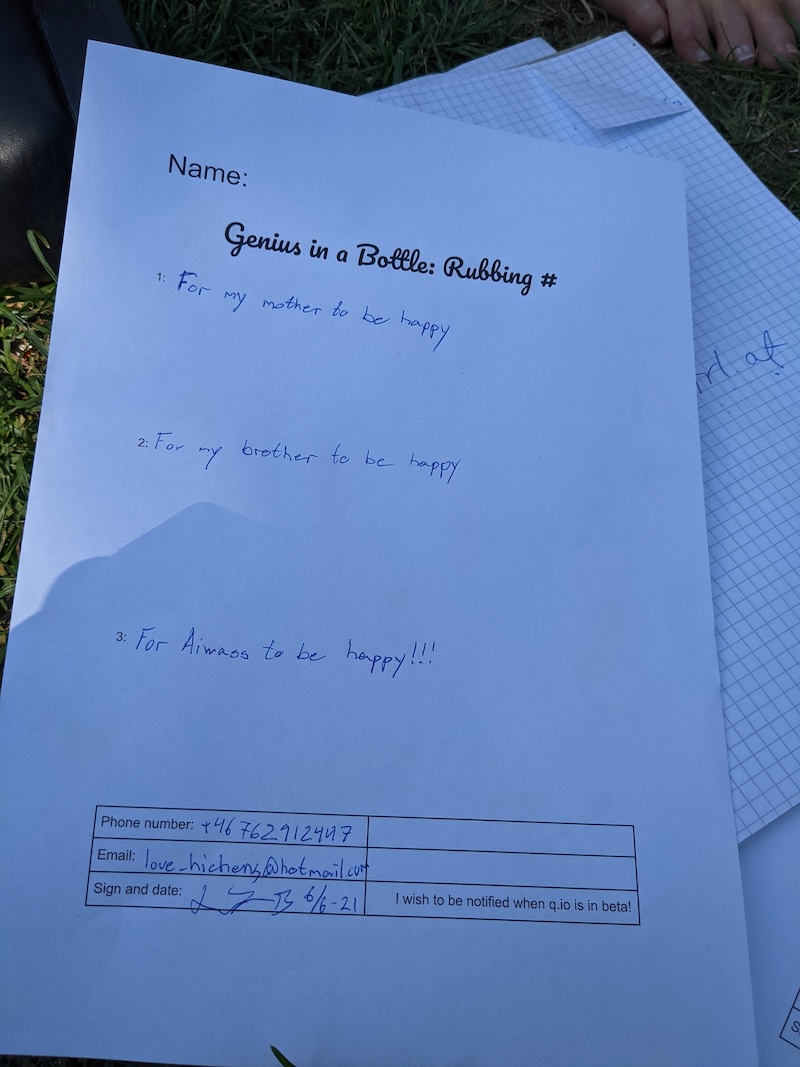 Name:
Genius in a Bottle: Rubbing #
1: For my mother to be happy
2: For my brother to be happy
3: For Aimaos to be happy!!!
Phone number: +46762912447
Email: love_hicheng@hotmail.com
Sign and date: 6/6-21
I wish to be notified when q.io is in beta!
at